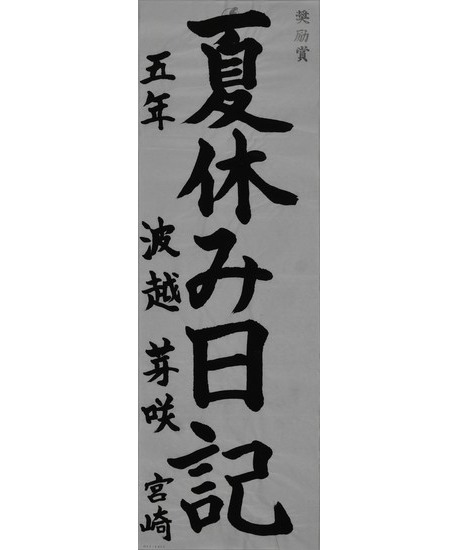 奨励賞
夏休み日記
五年 波越 芽咲 宮崎